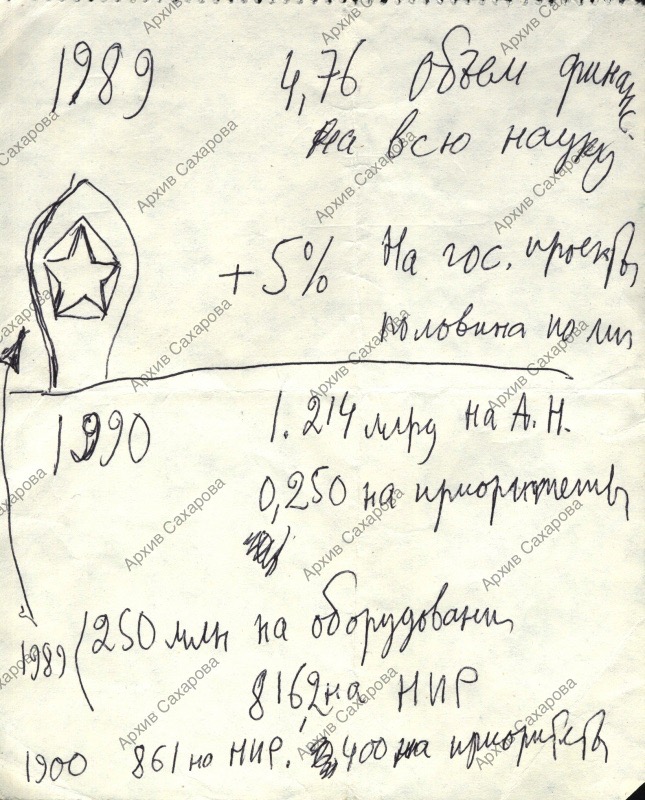 1989 4,76 объем финанс.
на всю науку
+5% На гос. проекты
половина по лин
1990 1.214 млрд на А.Н.
0,250 на приоритеты
1989 250 млн на оборудовани
816,2 на НИР
1900 861 на НИР. 400 на приоритеты
Архив Сахарова